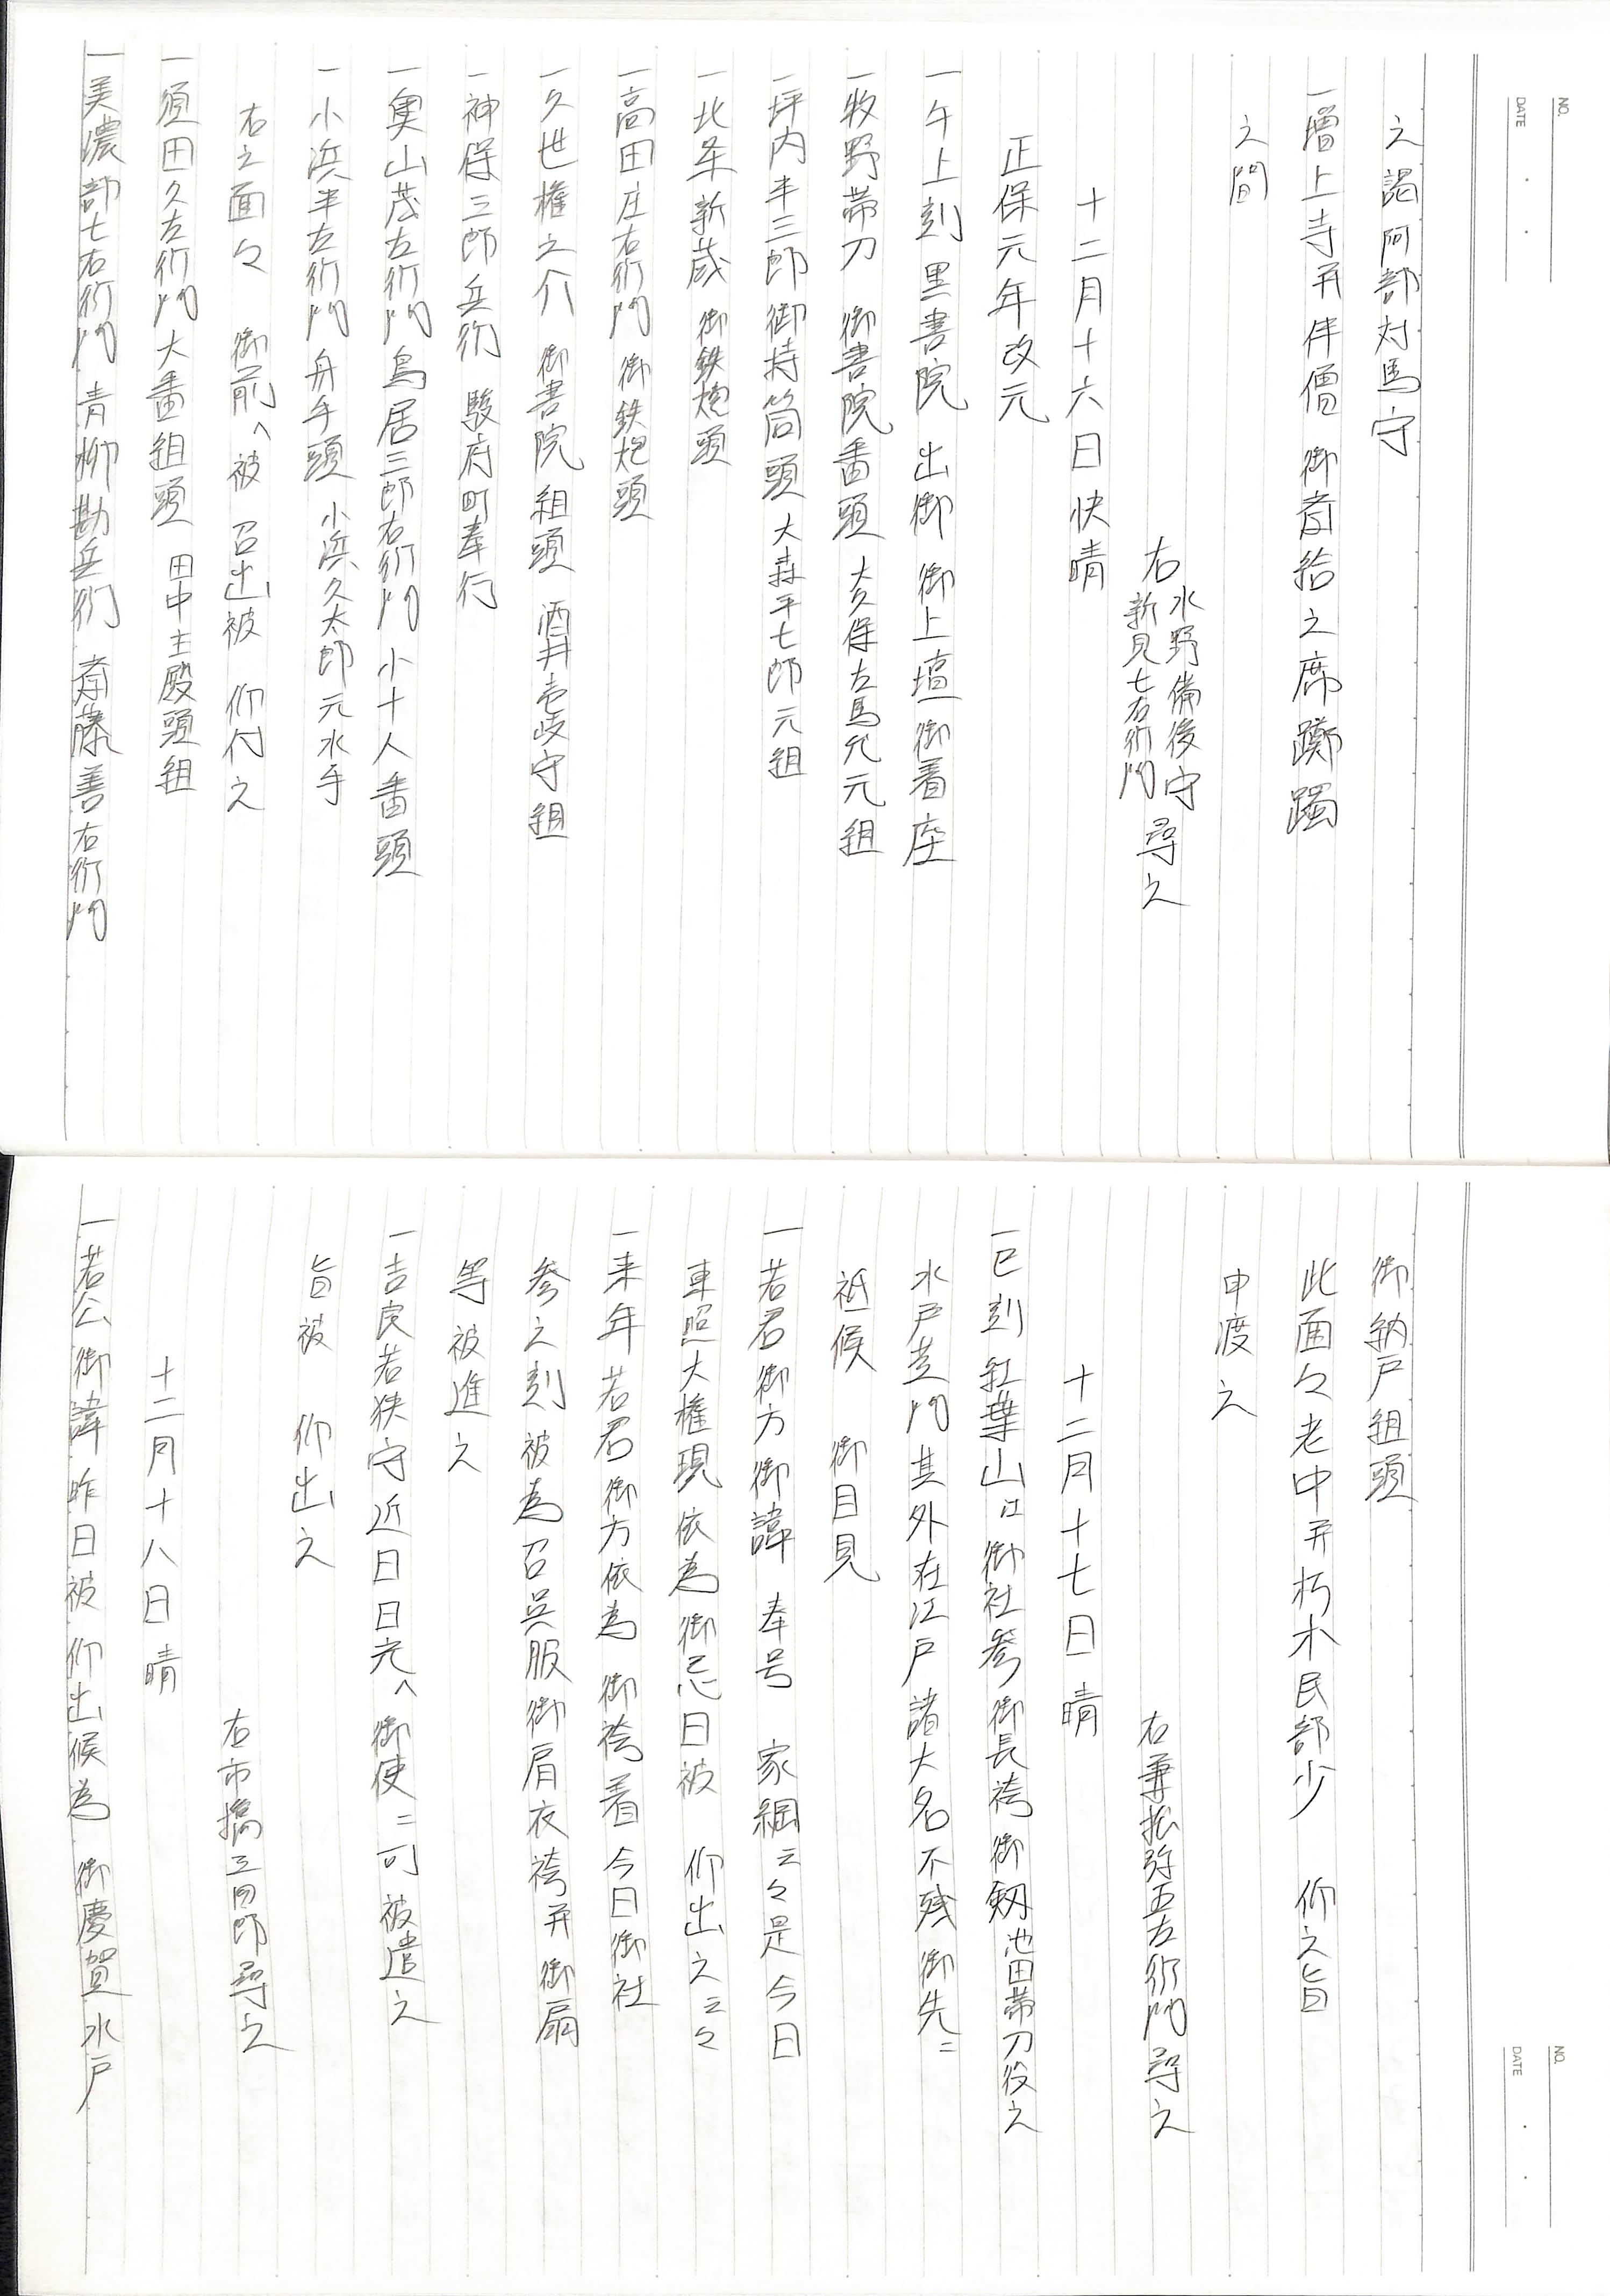 NO.
DATE
之謁阿部対馬守
一増上寺并伴僧 御斎給之席躑躅
之間
右水野備後守新見七右衛門尋之
十二月十六日快晴
正保元年改元
一午上刻 黒書院 出御 御上壇御着座
一牧野帯刀 御書院番頭 大久保右馬允元組
一坪内半三郎 御持筒頭 大森半七郎元組
一北条新蔵 御鉄炮頭
一高田庄右衛門 御鉄炮頭
一久世権之介 御書院組頭 酒井壱岐守組
一神保三郎兵衛 駿府町奉行
一奥山茂左衛門 鳥居三郎右衛門 小十人番頭
一小浜半左衛門 舟手頭 小浜久太郎元水手
右之面々 御前へ被 召出被 仰付之
一須田久左衛門 大番組頭 田中主殿頭組
一美濃部七右衛門 青柳勘兵衛 斎藤善右衛門
NO.
DATE
御納戸組頭
此面々老中并朽木民部少 仰之旨
申渡之
右兼松弥五左衛門尋之
十二月十七日 晴
一巳刻 紅葉山江御社参 御長袴 御剱池田帯刀役之
水戸黄門其外在江戸諸大名不残 御先ニ
祗候 御目見
一若君御方御諱 奉号 家綱云々是今日
東照大権現依為御忌日被 仰出之云々
一来年若君御方依為 御袴着今日御社
参之刻被為召呉服御肩衣袴并御扇
等被進之
一吉良若狭守近日日光へ御使ニ可被遣之
旨被 仰出之
右市橋三四郎尋之
十二月十八日 晴
一若公御諱昨日被 仰出候為 御慶賀水戸